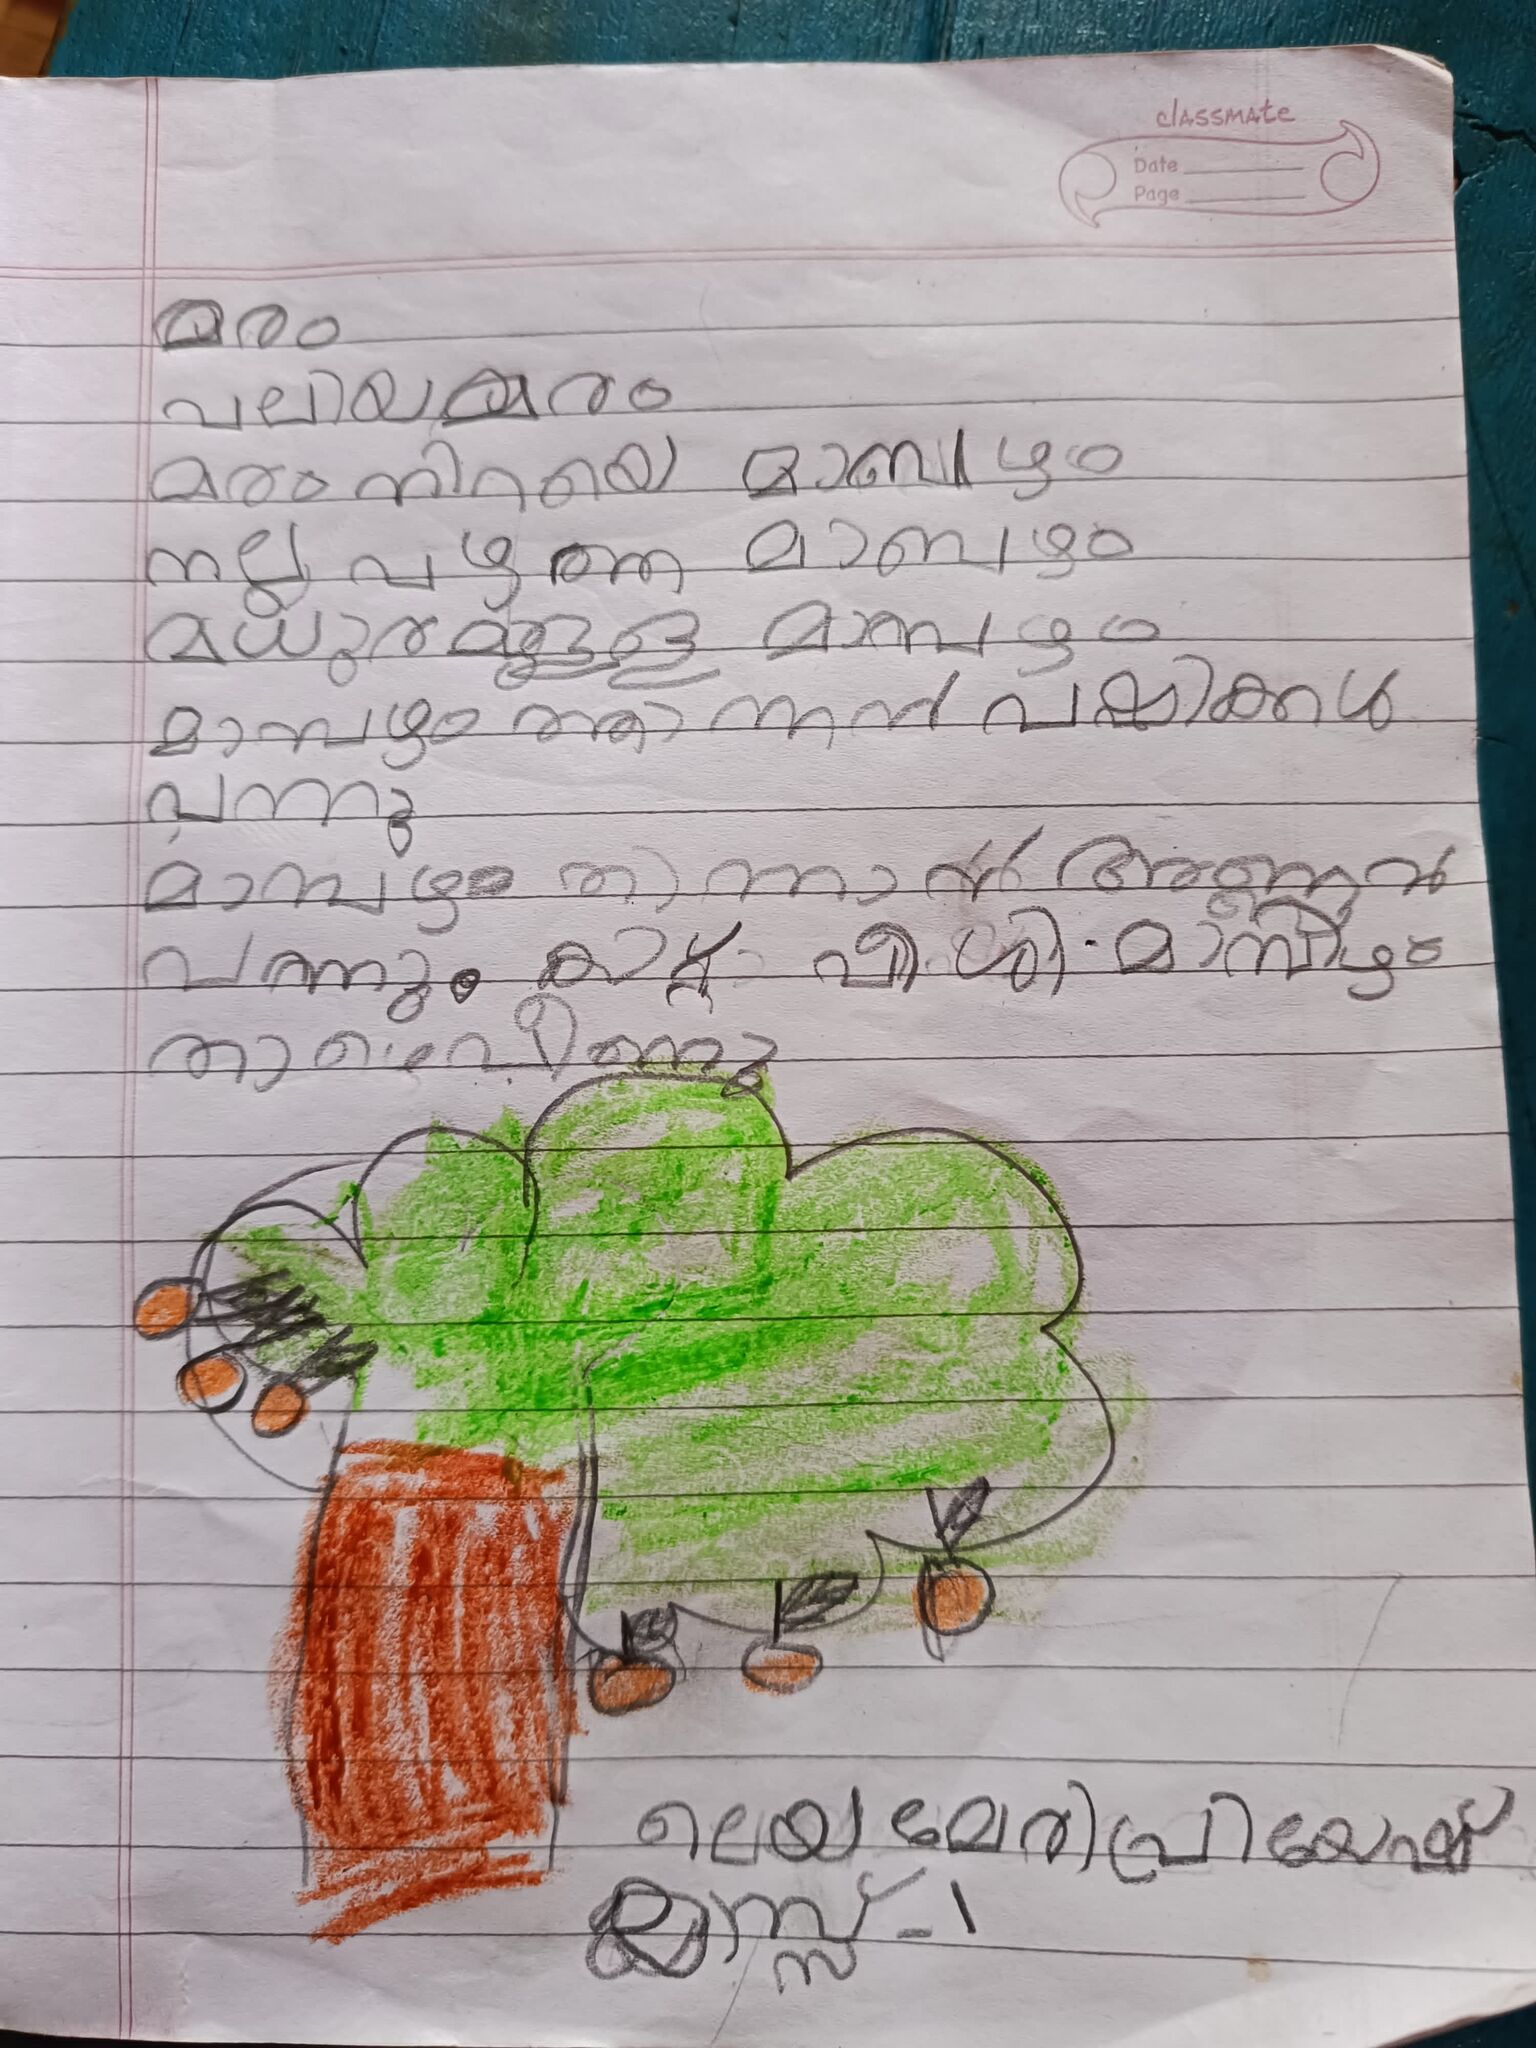 classmate
Date
Page
മരം
വലിയമരം
മരം നിറയെ മാമ്പഴം
നല്ല പഴുത്ത മാമ്പഴം
മധുരമുള്ള മാമ്പഴം
മാമ്പഴം തിന്നാൻ പക്ഷികൾ
വന്നു
മാമ്പഴം തിന്നാൻ അണ്ണാൻ
വന്നു. കാറ്റ് വീശി. മാമ്പഴം
താഴെ വീണു
ലെയ മേരി പ്രിയേഷ്
ക്ലാസ്സ് - 1